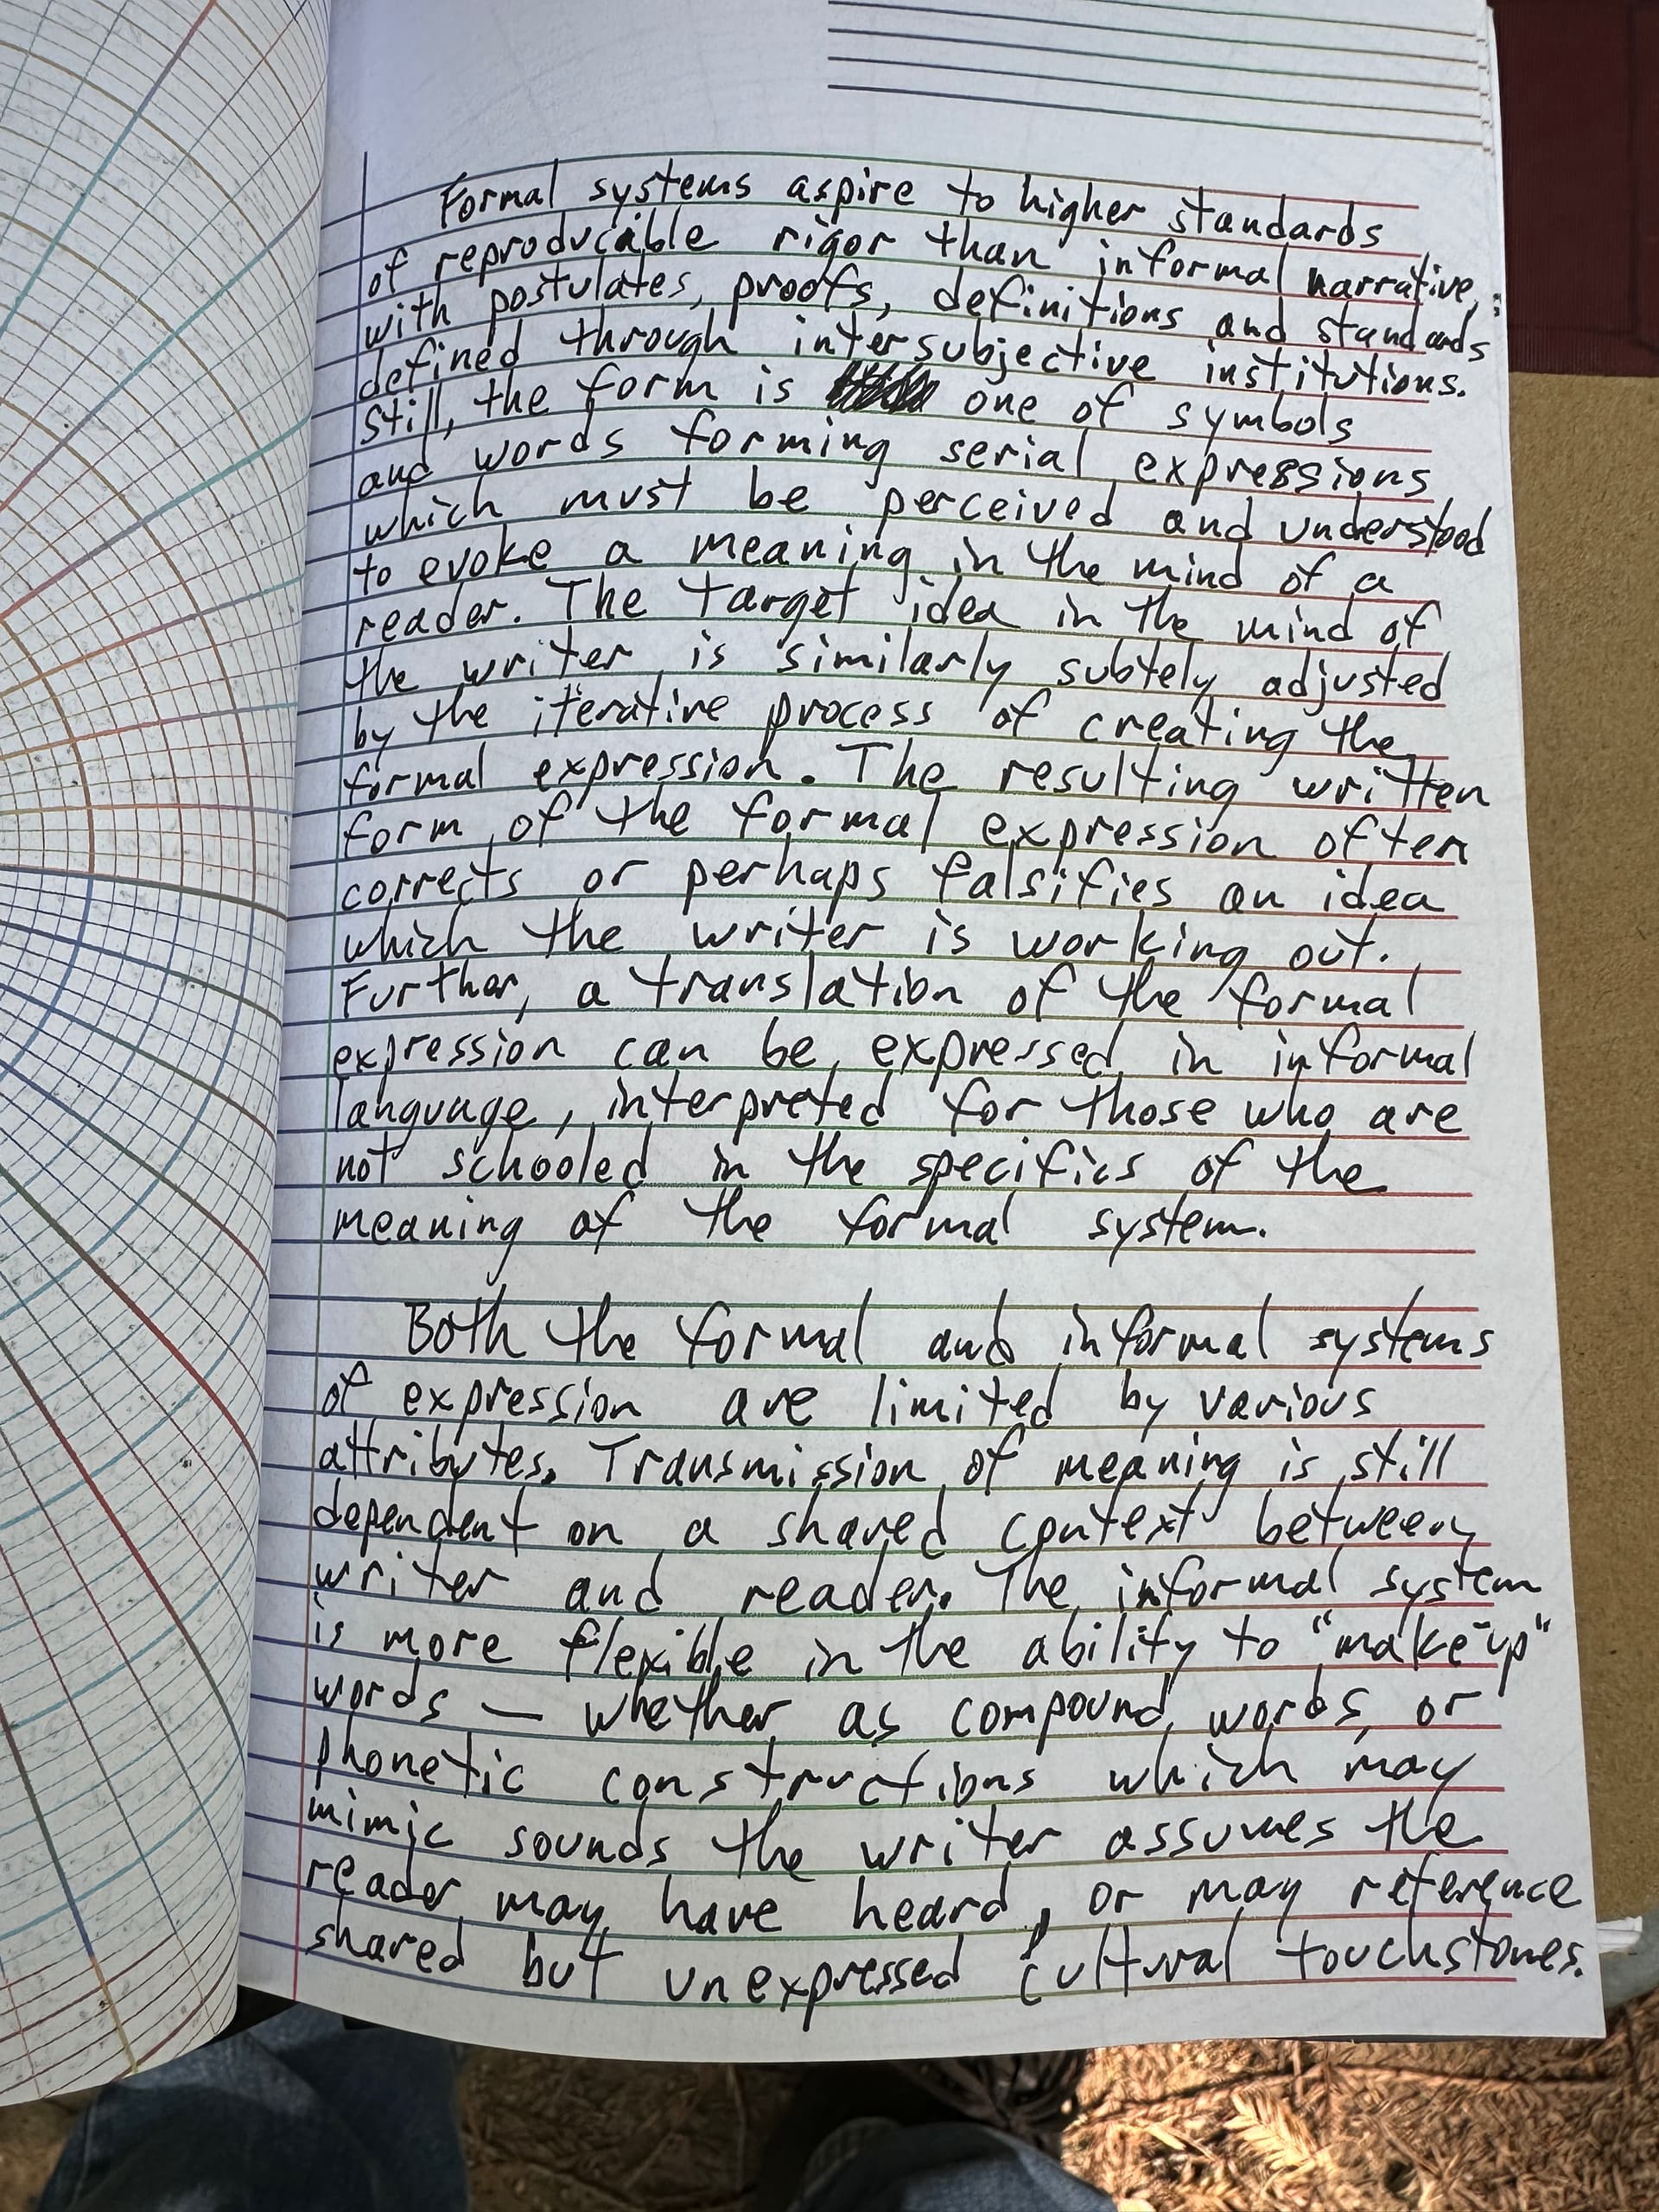 Formal systems aspire to higher standards
of reproducable rigor than informal narrative,
with postulates, proofs, definitions and standards
defined through intersubjective institutions.
Still, the form is one of symbols
and words forming serial expressions
which must be perceived and understood
to evoke a meaning in the mind of a
reader. The target idea in the mind of
the writer is similarly subtely adjusted
by the iterative process of creating the
formal expression. The resulting written
form of the formal expression often
corrects or perhaps falsifies an idea
which the writer is working out.
Further, a translation of the formal
expression can be expressed in informal
language, interpreted for those who are
not schooled in the specifics of the
meaning of the formal system.
Both the formal and informal systems
of expression are limited by various
attributes. Transmission of meaning is still
dependent on a shared context between
writer and reader. The informal system
is more flexible in the ability to "make-up"
words — whether as compound words, or
phonetic constructions which may
mimic sounds the writer assumes the
reader may have heard, or may reference
shared but unexpressed cultural touchstones.